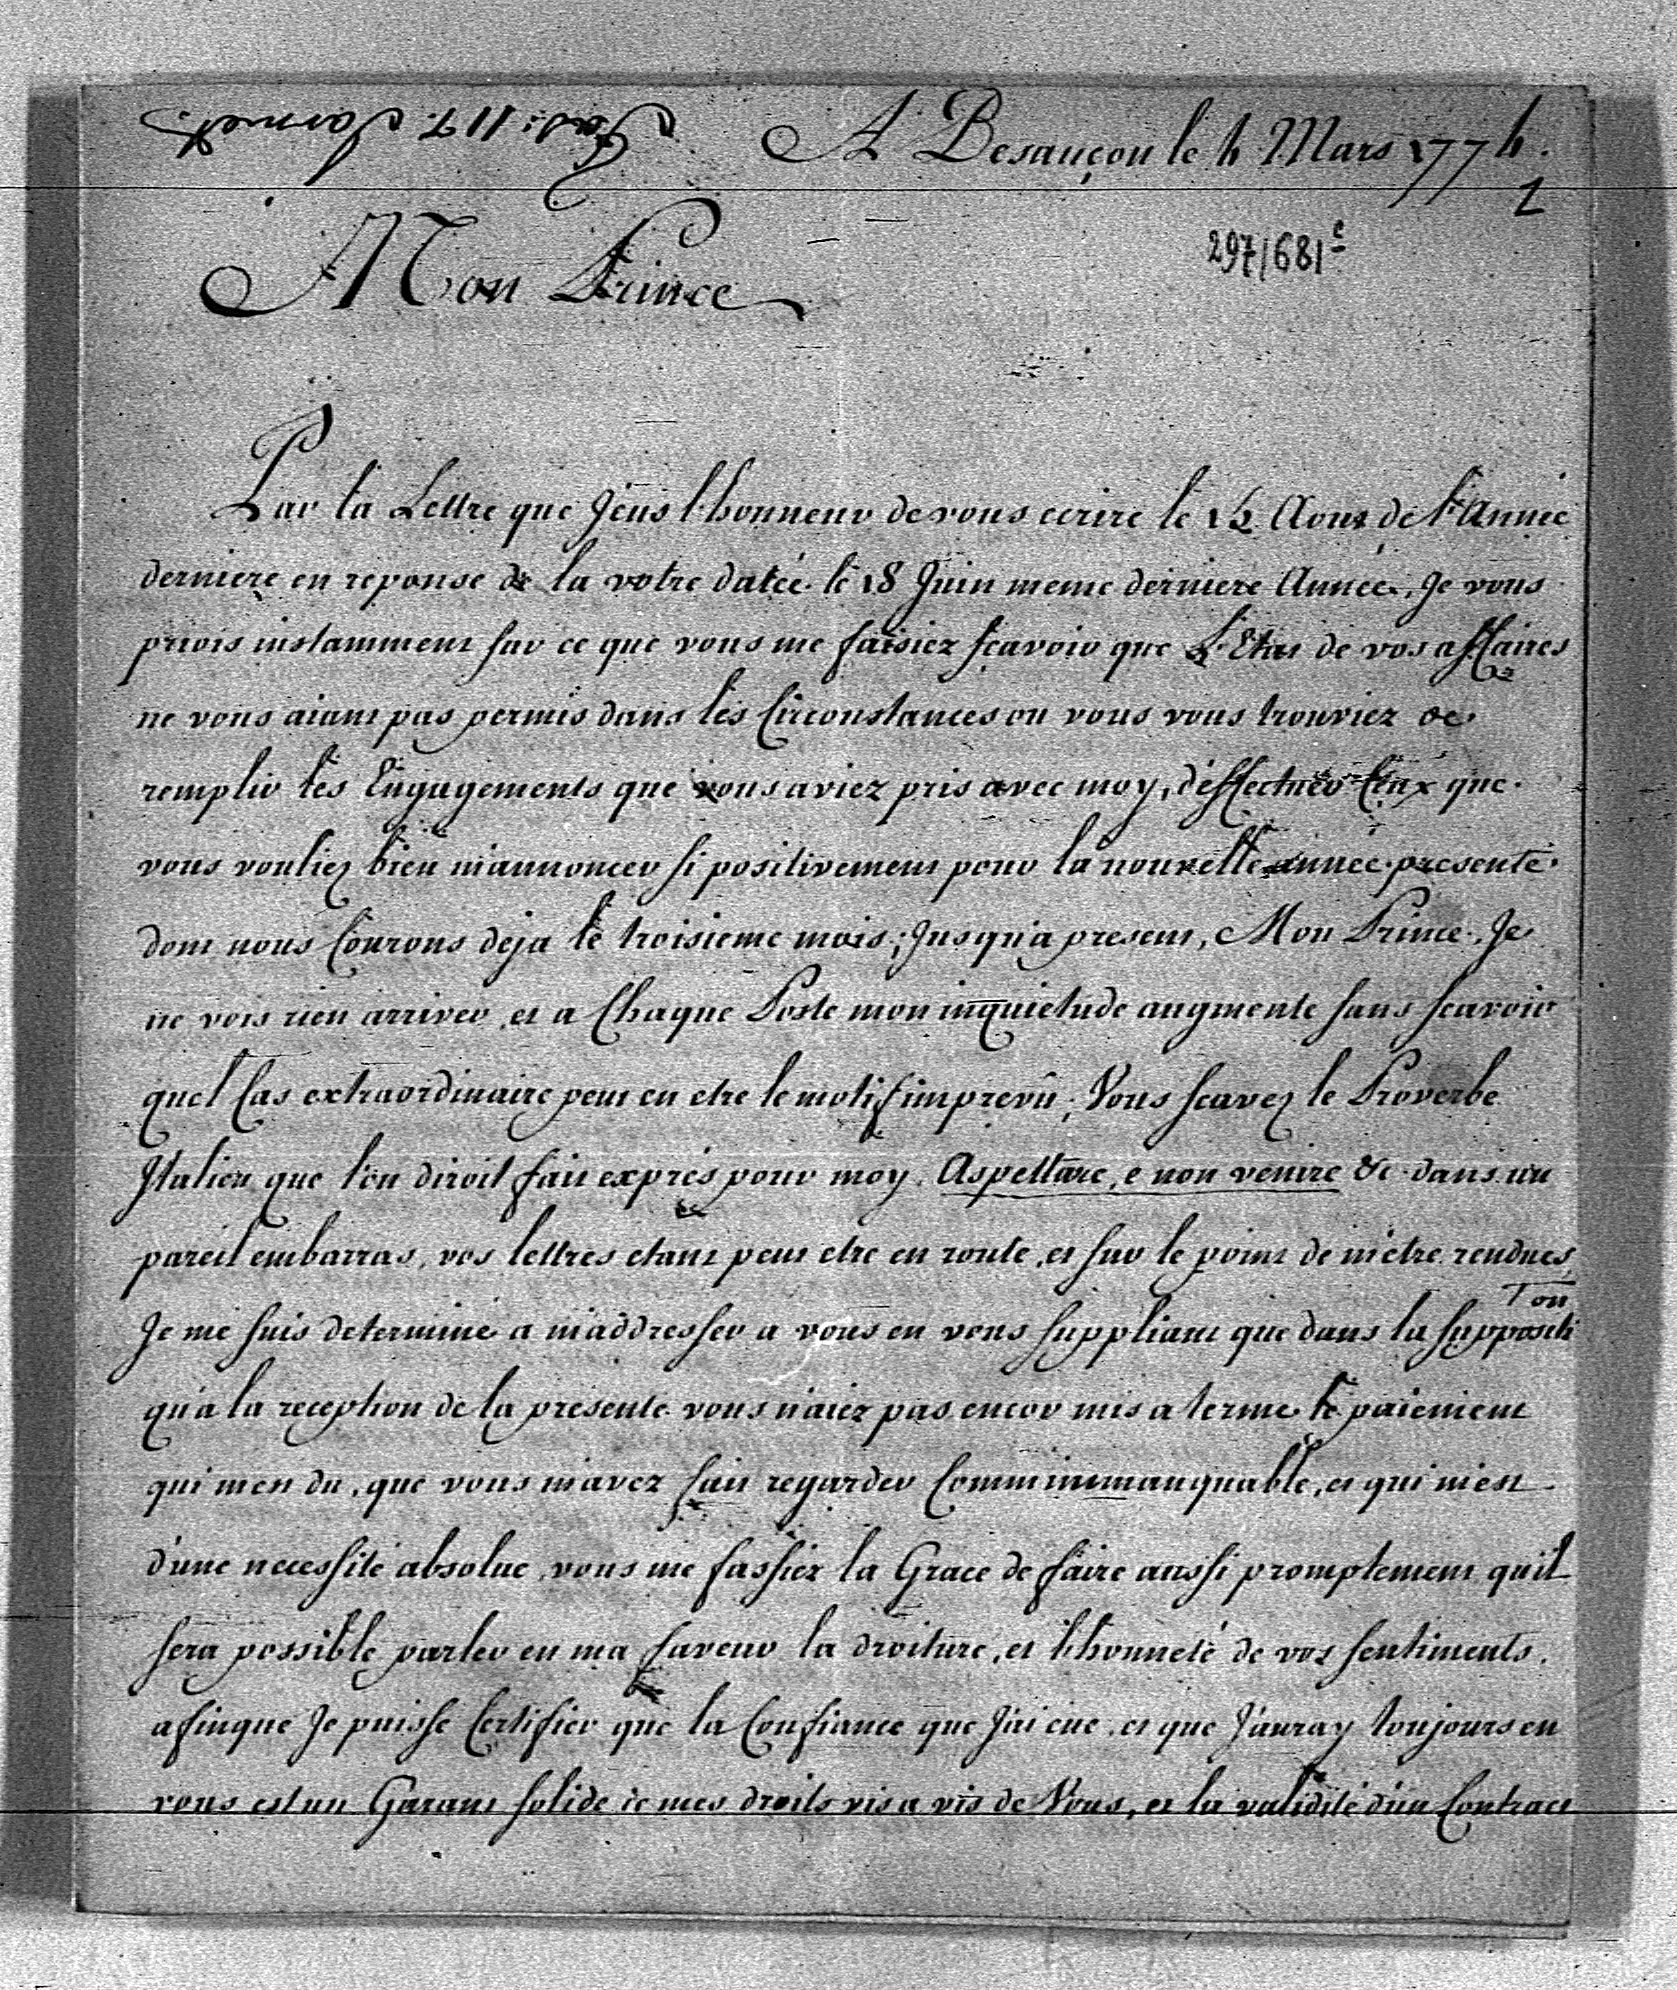 A Besançon le 4 Mars 1774.
1
297/681e
Mon Prince
Par la Lettre que J'eus l'honneur de vous ecrire le 12 Aout de l'Année
derniere en reponse de la votre datée le 18 Juin meme derniere Année, Je vous
priois instamment sur ce que vous me faisiez sçavoir que L'Etat de vos affaires
ne vous aiant pas permis dans les Circonstances ou vous vous trouviez de
remplir les Engagements que vous aviez pris avec moy, d'effectuer Ceux que
vous vouliez bien m'annoncer si positivement pour la nouvelle année presente
dont nous Courons deja le troisieme mois; Jusqu'a present, Mon Prince, Je
ne vois rien arriver, et a Chaque Poste mon inquietude augmente sans scavoir
quel Cas extraordinaire peut en etre le motif imprevû; Vous scavez le Proverbe
Italien que l'on diroit fait exprés pour moy. Aspettare, e non venire &c. dans un
pareil embarras, vos lettres etant peut etre en route, et sur le point de m'etre rendues,
Je me suis determiné a m'addresser a vous en vous suppliant que dans la suppositi
on
qu'a la reception de la presente vous n'aiez pas encor mis a terme le paiement
qui m'en du, que vous m'avez fait regarder Comm'immanquable, et qui m'est
d'une necessité absolue, vous me fassiez la Grace de faire aussi promptement qu'il
sera possible parler en ma faveur la droiture, et l'honneté de vos sentiments,
afinque Je puisse Certifier que la Confiance que J'ai eue, et que J'auray toujours en
vous est un Garant solide de mes droits vis a vis de Vous, et la validité d'un Contract